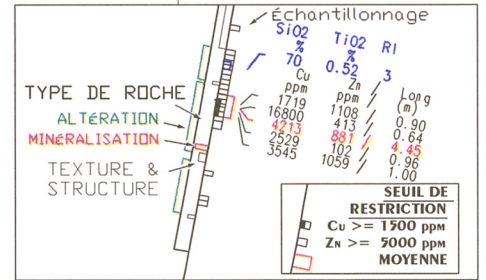 Échantillonnage
SiO2 TiO2 RI
% %
70 0.52 3
Cu Zn Long
ppm ppm (m)
1719 1108 / 0.90
16800 413 / 0.64
4213 881 / 4.45
2529 102 / 0.96
3545 1059 / 1.00
TYPE DE ROCHE
ALTéRATION
MINéRALISATION
TEXTURE &
STRUCTURE
SEUIL DE
RESTRICTION
Cu >= 1500 PPM
ZN >= 5000 PPM
MOYENNE